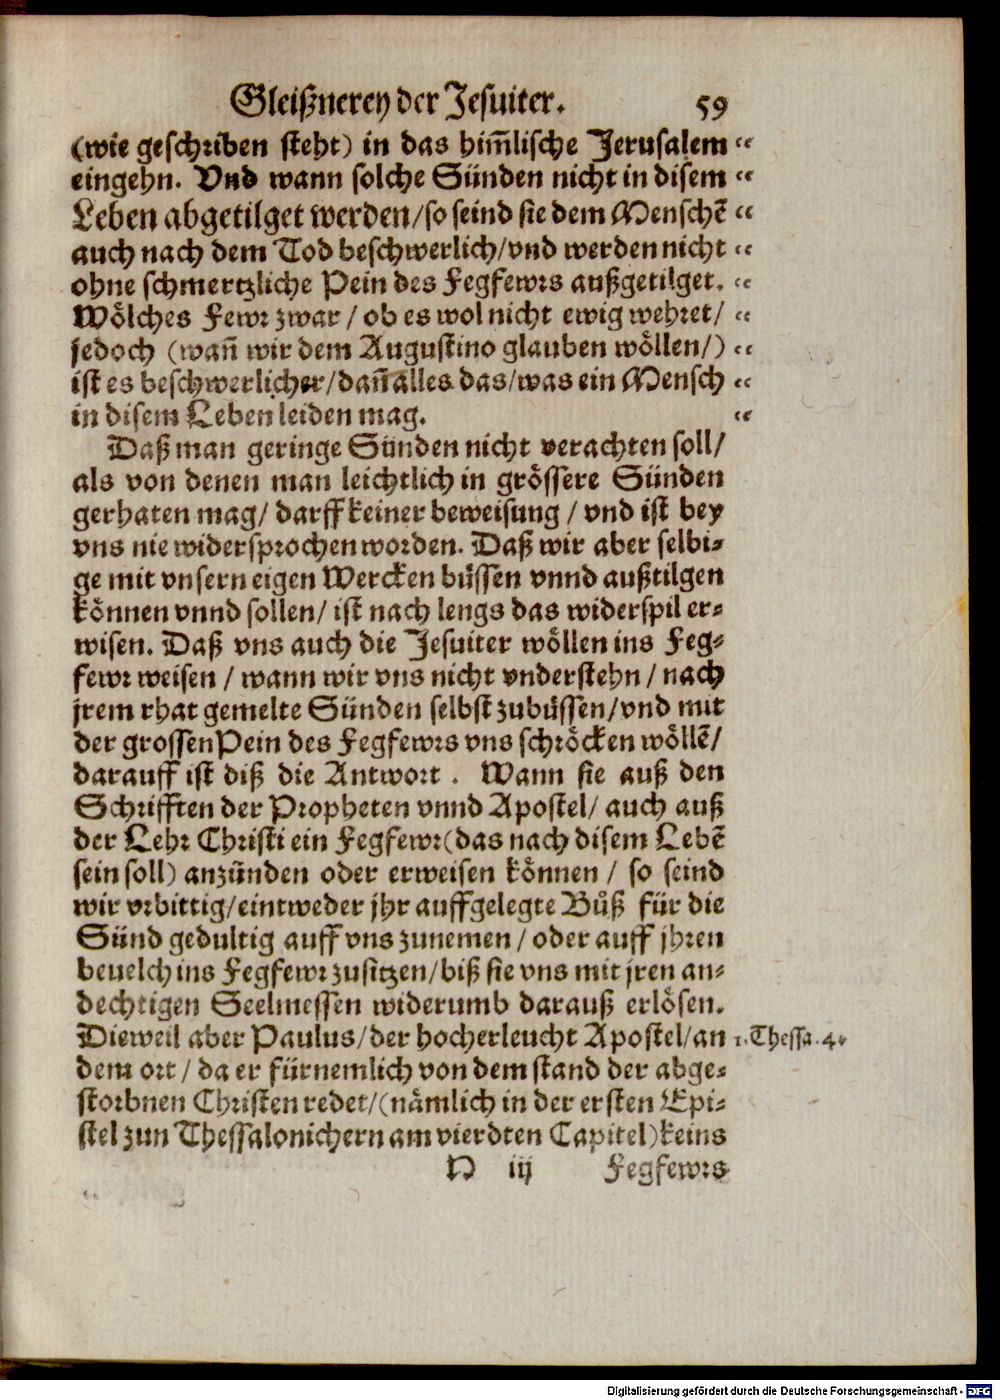 Gleißnerey der Jesuiter. 59
(wie geschriben steht) in das him̃lische Jerusalem “
eingehn. Vnd wann solche Sünden nicht in disem “
Leben abgetilget werden/so seind sie dem Menschẽ “
auch nach dem Tod beschwerlich/vnd werden nicht “
ohne schmertzliche Pein des Fegfewrs außgetilget. “
Wölches Fewr zwar / ob es wol nicht ewig wehret/ “
jedoch (wañ wir dem Augustino glauben wöllen/) “
ist es beschwerlicher/dañ alles das/was ein Mensch “
in disem Leben leiden mag. “
Daß man geringe Sünden nicht verachten soll/
als von denen man leichtlich in grössere Sünden
gerhaten mag/ darff keiner beweisung / vnd ist bey
vns nie widersprochen worden. Daß wir aber selbi-
ge mit vnsern eigen Wercken büssen vnnd außtilgen
können vnnd sollen/ ist nach lengs das widerspil er-
wisen. Daß vns auch die Jesuiter wöllen ins Feg-
fewr weisen / wann wir vns nicht vnderstehn / nach
jrem rhat gemelte Sünden selbst zubüssen/vnd mit
der grossen Pein des Fegfewrs vns schröcken wöllẽ/
darauff ist diß die Antwort . Wann sie auß den
Schrifften der Propheten vnnd Apostel/ auch auß
der Lehr Christi ein Fegfewr(das nach disem Lebẽ
sein soll) anzünden oder erweisen können / so seind
wir vrbittig/eintweder jhr auffgelegte Bůß für die
Sünd gedultig auff vns zunemen / oder auff jhren
beuelch ins Fegfewr zusitzen/biß sie vns mit jren an-
dechtigen Seelmessen widerumb darauß erlösen.
Dieweil aber Paulus/der hocherleucht Apostel/an 1.Thessa.4.
dem ort / da er fürnemlich von dem stand der abge-
storbnen Christen redet/(nämlich in der ersten Epi-
stel zun Thessalonichern am vierdten Capitel)keins
H iij Fegfewrs
Digitalisierung gefördert durch die Deutsche Forschungsgemeinschaft - DFG